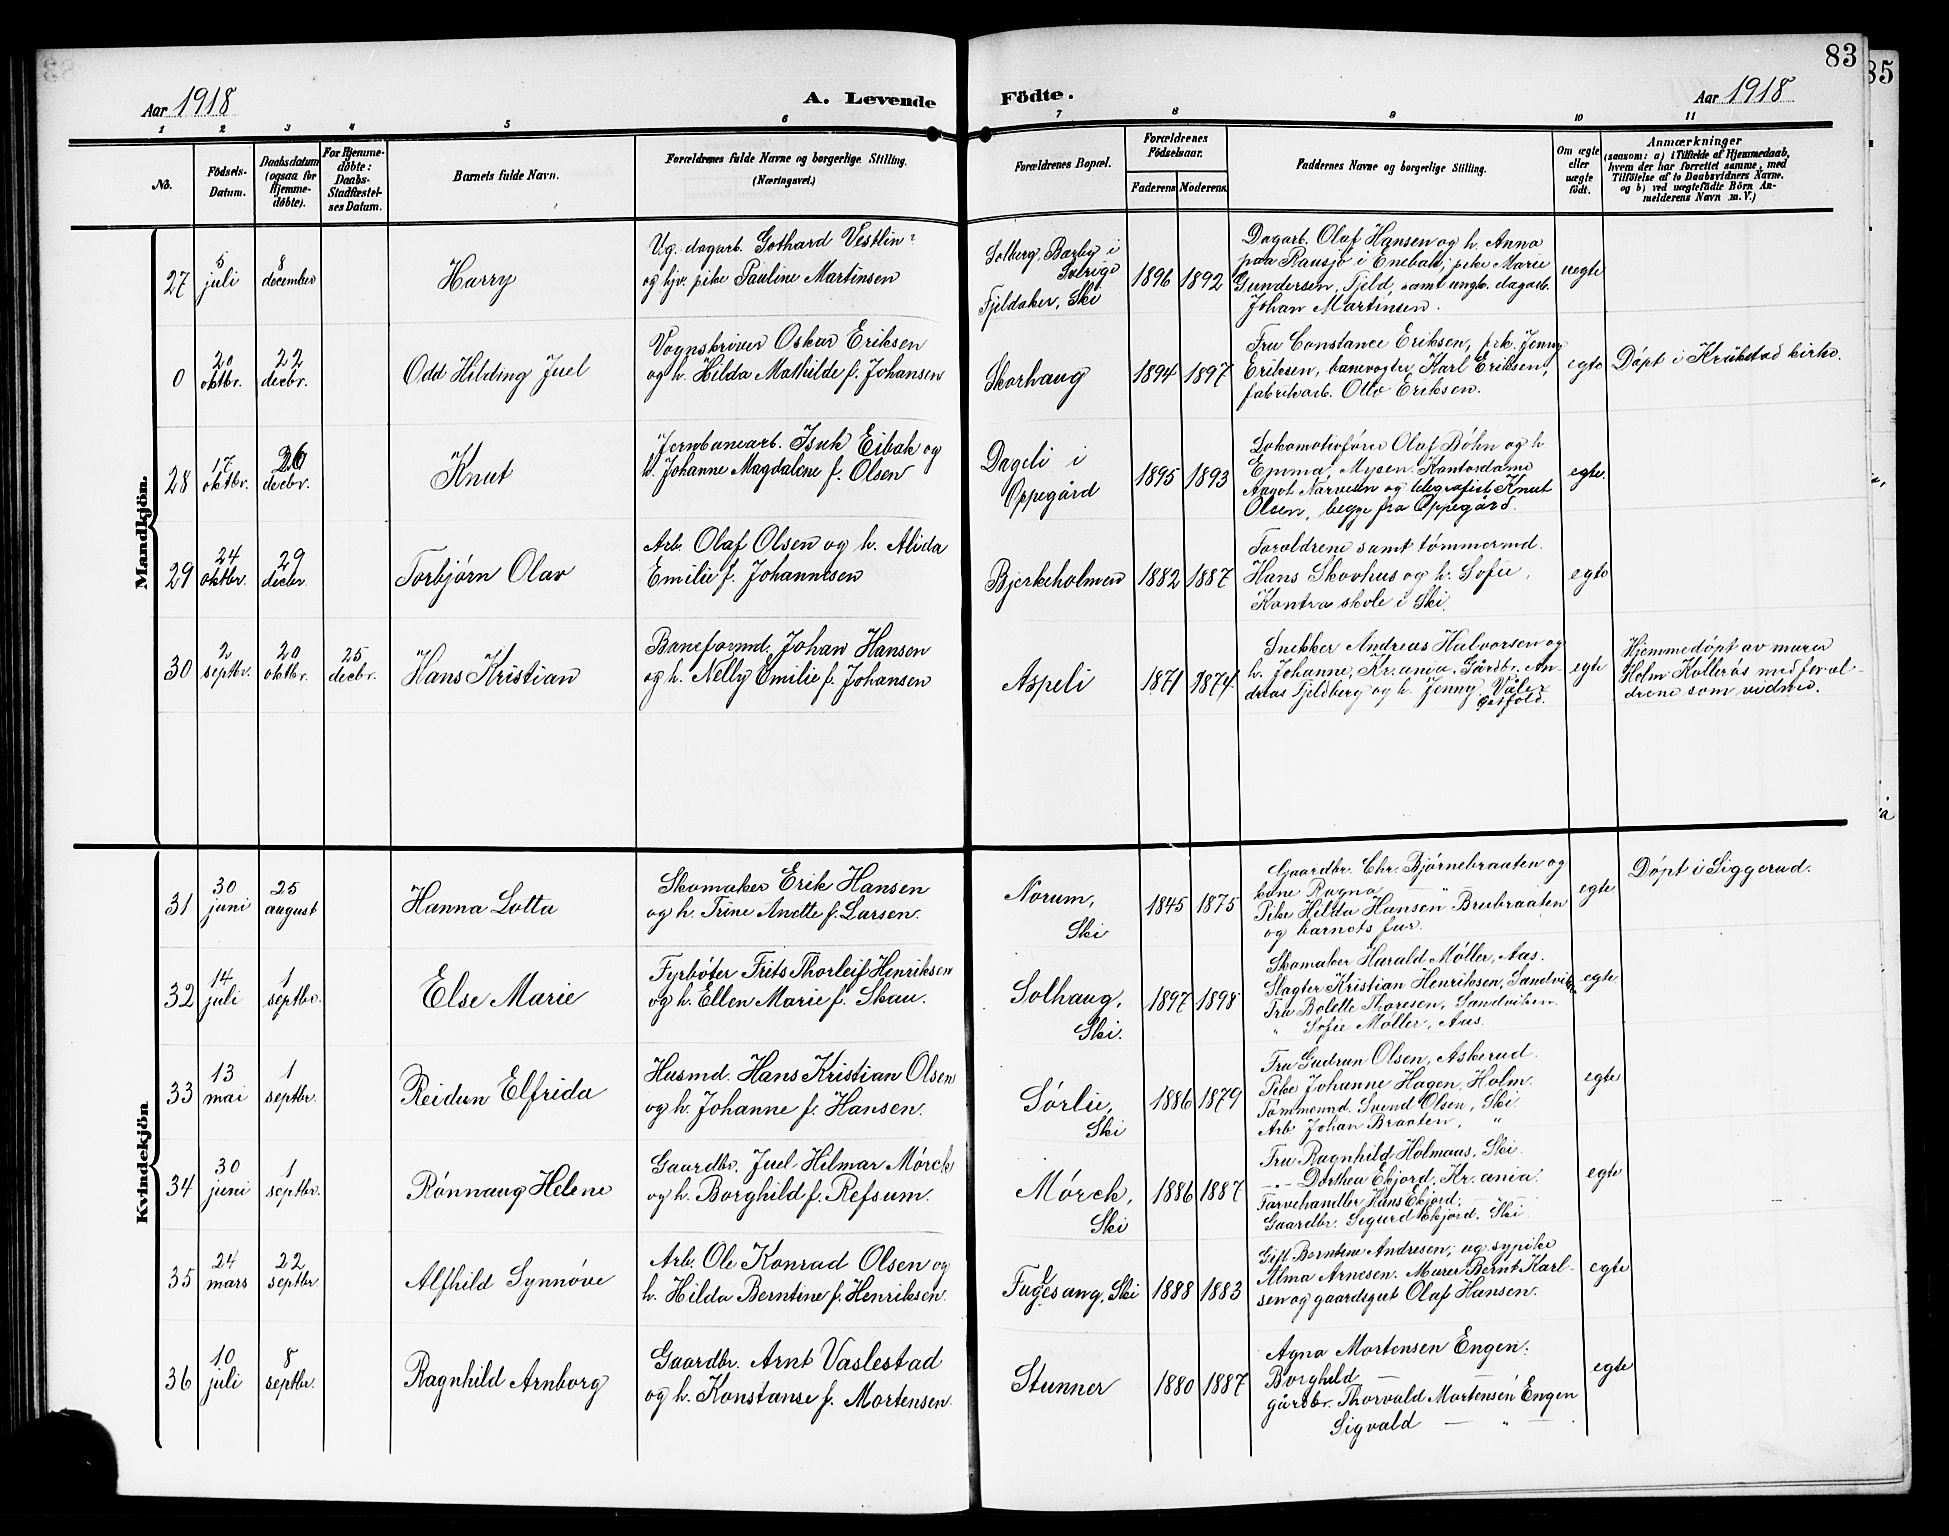 83
85
Aar 1918
A. Levende Födte.
Aar 1918
1 2 3 4 5 6 7 8 9 10 11
No.
Födsels-
Datum.
Daabsdatum
(ogsaa for
Hjemme-
döbte).
For Hjemme-
döbte:
Daabs-
Stadfæstel-
ses Datum.
Barnets fulde Navn.
Forældrenes fulde Navne og borgerlige Stilling.
(Næringsvei.)
Forældrenes Bopæl.
Forældrenes
Födselsaar.
Faderens. Moderens.
Faddernes Navne og borgerlige Stilling.
Om ægte
eller
uægte
födt.
Anmærkninger
(saasom: a) i Tilfælde af Hjemmedaab,
hvem der har forrettet samme, med
Tilföielse af to Daabsvidners Navne.
og b) ved uægtefödte Börn An-
melderens Navn m. V.)
Mandkjön.
27
5
juli
8
december
Harry
Ug. dagarb. Gothard Vestlin?
og hjv. pike Pauline Martinsen
Solberg, Barby i
Sverige
Fjeldaker, Ski
1896 1892
Dagarb. Olaf Hansen og h. Anna
paa Rausjø i Enebak; pike Marie
Gundersen, Fjeld, samt ungk. dagarb.
Johan Martinsen.
uegte
0
20
oktbr.
22
decbr.
Odd Hilding Juel
Vognskriver Oskar Eriksen
og h. Hilda Mathilde f. Johansen
Skorhaug
1894 1897
Fru Constance Eriksen, frk. Jenny
Eriksen, banevogter Karl Eriksen,
fabrikarb. Otto Eriksen.
egte
Døpt i Kråkstad kirke.
28
17
oktbr.
26
decbr.
Knut
Jernbanearb. Isak Eibak og
h. Johanne Magdalene f. Olsen
Dageli i
Oppegård
1895 1893
Lokomotivfører Olaf Bøhn og h
Emma, Mysen. Kontordame
Aagot Narvesen og telegrafist Knut
Olsen, begge fra Oppegård.
egte.
29
24
oktbr.
29
decbr.
Torbjørn Olav
Arb. Olaf Olsen og h. Alida
Emilie f. Johannesen
Bjerkeholmen
1882 1887
Forældrene samt tømmermd.
Hans Skovhus og h. Sofie,
Kontra skole i Ski.
egte
30
2
septbr.
20
oktbr.
25
decbr.
Hans Kristian
Baneformd. Johan Hansen
og h. Nelly Emilie f. Johansen
Aspeli
1871 1874
Snekker Andreas Halvorsen og
h. Johanne, Kr.ania. Gårdbr. An-
dreas Fjeldberg og h. Jenny Våler
Østfold.
egte
Hjemmedøpt av murer
Holm Kollerøs med foræl-
drene som vidner.
Kvindekjön
31
30
juni
25
august
Hanna Lotta
Skomaker Erik Hansen
og h. Trine Anette f. Larsen.
Norum,
Ski
1845 1875
Gaardbr. Chr. Bjørnebraaten og
kone Ragna — "
Pike Hilda Hansen Brubraaten
og barnets far.
egte
Døpt i Siggerud.
32
14
juli
1
septbr.
Else Marie
Fyrbøter Frits Thorleif Henriksen
og h. Ellen Marie f. Skau.
Solhaug,
Ski.
1897 1898
Skomaker Harald Møller, Aas.
Slagter Kristian Henriksen, Sandviken
Fru Bolette Thoresen, Sandviken.
" Sofie Møller, Aas.
egte.
33
13
mai
1
septbr.
Reidun Elfrida
Husmd. Hans Kristian Olsen
og h. Johanne f. Hansen.
Sørlie,
Ski
1886 1879
Fru Gudrun Olsen, Askerud.
Pike Johanne Hagen, Holm.
Tømmermd. Svend Olsen, Ski.
Arb. Johan Braaten, "
egte
34
30
juni
1
septbr.
Rønnaug Helene
Gaardbr. Juel Hilmar Mørck
og h. Borghild f. Refsum.
Mørck,
Ski
1886 1887
Fru Ragnhild Holmaas, Ski.
—"— Dorthea Ekjord, Kr.ania.
Farvehandler Hans Ekjord; —"—
Gaardbr. Sigurd Ekjord, Ski.
egte
35
24
mars
22
septbr
Alfhild Synnøve
Arb. Ole Konrad Olsen og
h. Hilda Berntine f. Henriksen.
Fuglesang, Ski
1888 1883
Gift Berntine Andresen; ug. sypike
Alma Arnesen. Murer Bernt Karl-
sen og gaardsgut Olaf Hansen.
egte
36
10
juli
8
septbr.
Ragnhild Arnborg
Gaardbr. Arnt Vaslestad
og h. Konstanse f. Mortensen.
Stunner
1880 1887
Agna Mortensen Engen.
Borghild — —
gårdbr. Thorvald Mortensen Engen
Sigvald — " —
egte